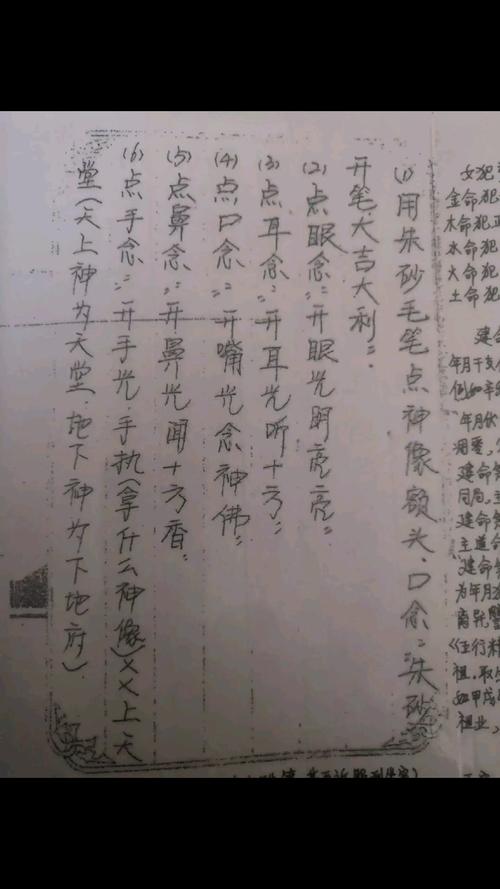 (1)用朱砂毛笔点神像额头.口念:"朱砂
开笔.大吉大利".
(2)点眼念:"开眼光明亮亮"
(3)点耳念:"开耳光听十方"
(4)点口念:"开嘴光念神佛"
(5)点鼻念:"开鼻光闻十方香"
(6)点手念:"开手光.手执(拿什么神像)××上天
堂(天上神为天堂.地下神为下地府)
女犯
金命犯
木命犯正
水命犯
火命犯
土命犯
建命
年月干支
例如辛
年月伏
建命
同局
建命
主道
建命
为年月
祖.取
如甲戌
祖业,